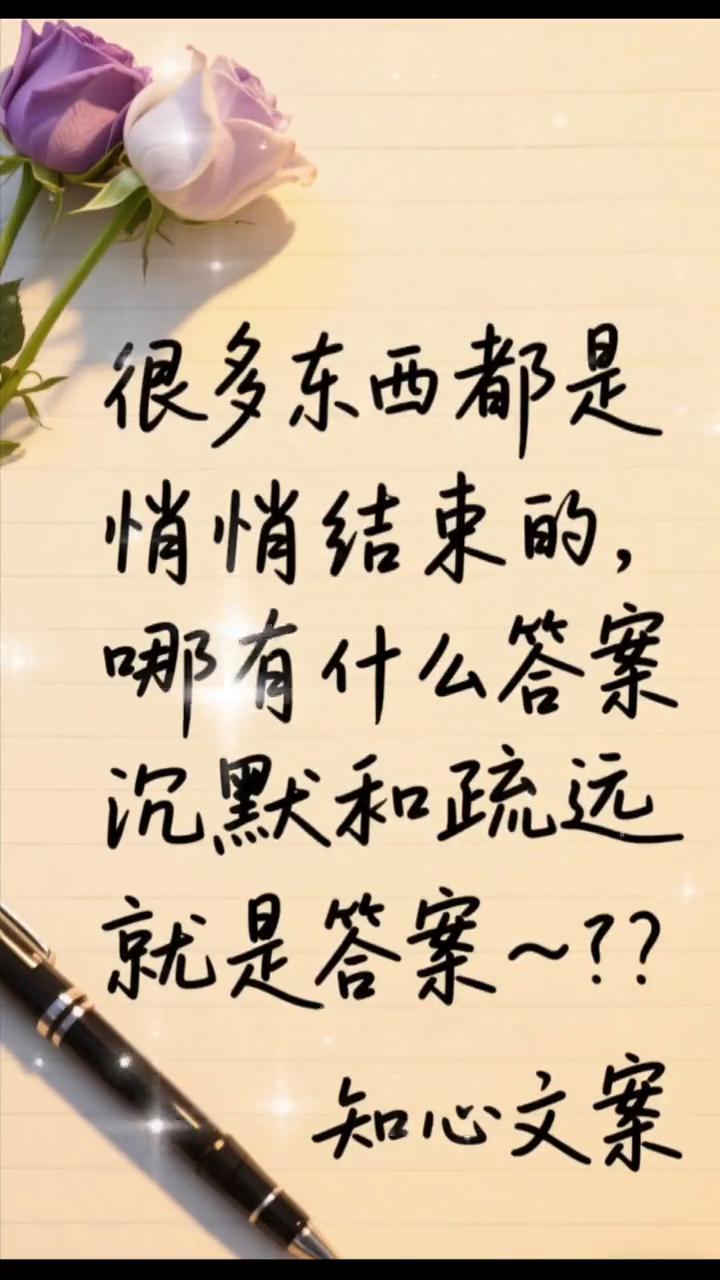 很多东西都是
悄悄结束的,
哪有什么答案
沉默和疏远
就是答案~??
知心文案